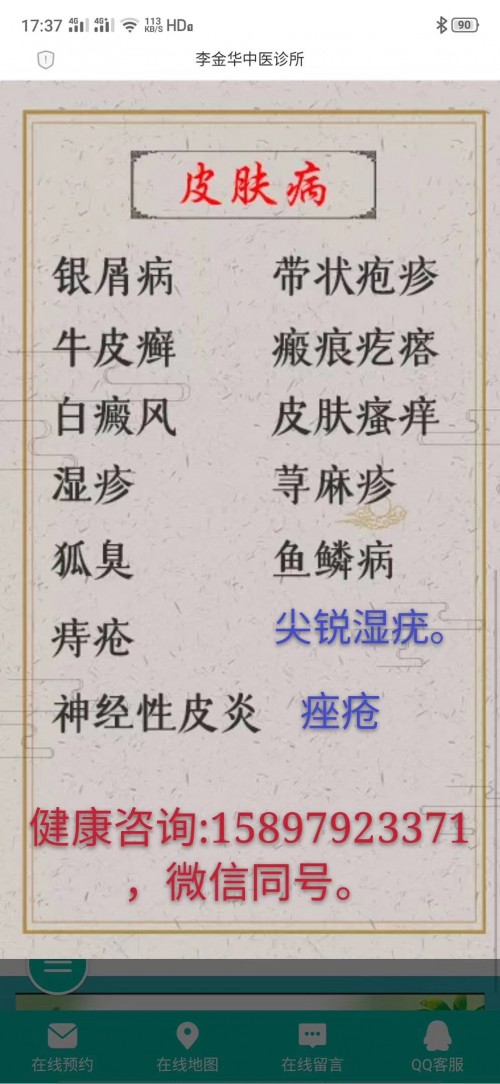 17:37 4G 4G+ 113 KB/S HD 90
李金华中医诊所
皮肤病
银屑病 带状疱疹
牛皮癣 瘢痕疙瘩
白癜风 皮肤瘙痒
湿疹 荨麻疹
狐臭 鱼鳞病
痔疮 尖锐湿疣。
神经性皮炎 痤疮
健康咨询:15897923371
，微信同号。
在线预约 在线地图 在线留言 QQ客服